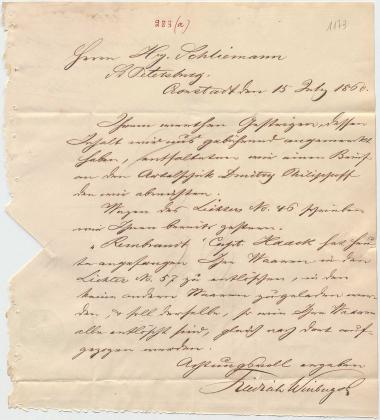 283 (a)
1173
Herrn Hy. Schliemann
St Petersburg.
Cronstadt den 15 July 1860.
Ihrem werthen Gestrigen, dessen
Inhalt wir uns gebührend angemerkt
haben, entfalteten wir einen Brief
an den Artelschik Dmitry Philipoff
den wir abreichten.
Wegen des Lichters No. 46 schrieben
wir Ihnen bereits gestern.
"Rembrandt" Capt. Haack hat heu-
te angefangen Ihre Waaren in den
Lichter No. 57 zu entlöschen, in den
keine andern Waaren zugeladen wer-
den, & soll derselbe, so wie Ihre Waaren
alle entlöscht sind, gleich nach dort auf-
gezogen werden.
Achtungsvoll ergeben